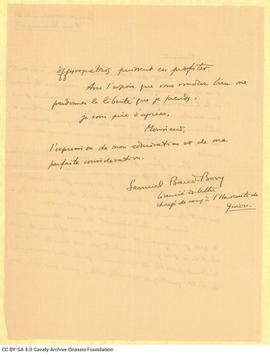 puissent en profiter.
Avec l'espoir que vous voudrez bien me
pardonner la liberté que je prends,
je vous prie d'agréer,
Monsieur,
l'expression de mon admiration et de ma
parfaite considération.
Samuel Baud-Bovy
licencié ès lettres
chargé de cours à l'Université de
Genève.
CC BY-SA 4.0 Cavafy Archive Onassis Foundation